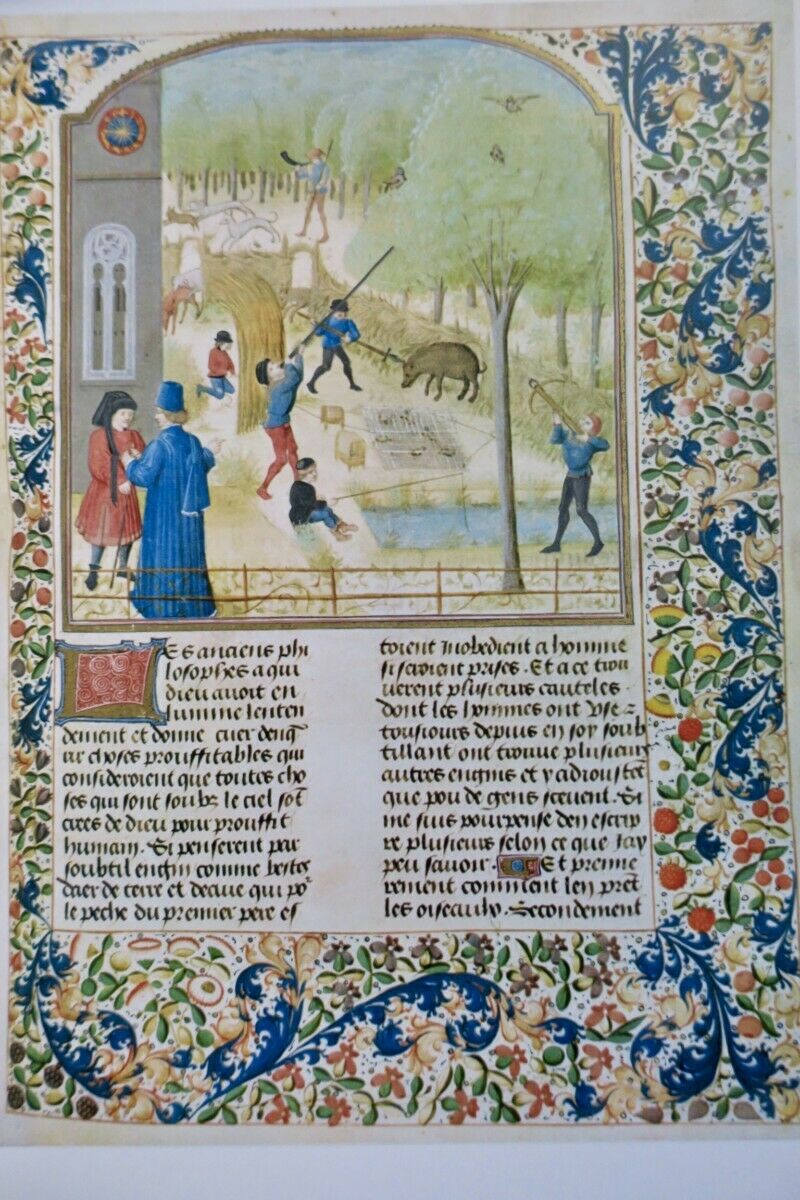 Es anciens phi
losophes a qui
dieu avoit en
lumine lenten
dement et donne cuer denq̄
rir choses prouffitables qui
consideroient que toutes cho
ses qui sont soubz le ciel sōt
crees de dieu pour prouffit
humain. Si penserent par
soubtil engin comme bestes
daer de terre et deaue qui po͛
le peche du premier pere es
toient Inobedient a homme
si seroient prises. Et a ce trou
uerent plusieurs cauteles
dont les hommes ont use
tousiours depuis en soy soub
tillant ont trouue plusieurs
autres engins et y adioustēt
que pou de gens sceuent. Si
me suis pourpense den escrip
re plusieurs selon ce que Jay
peu sauoir. Et premie
rement comment len prēt
les oiseaulx. Secondement